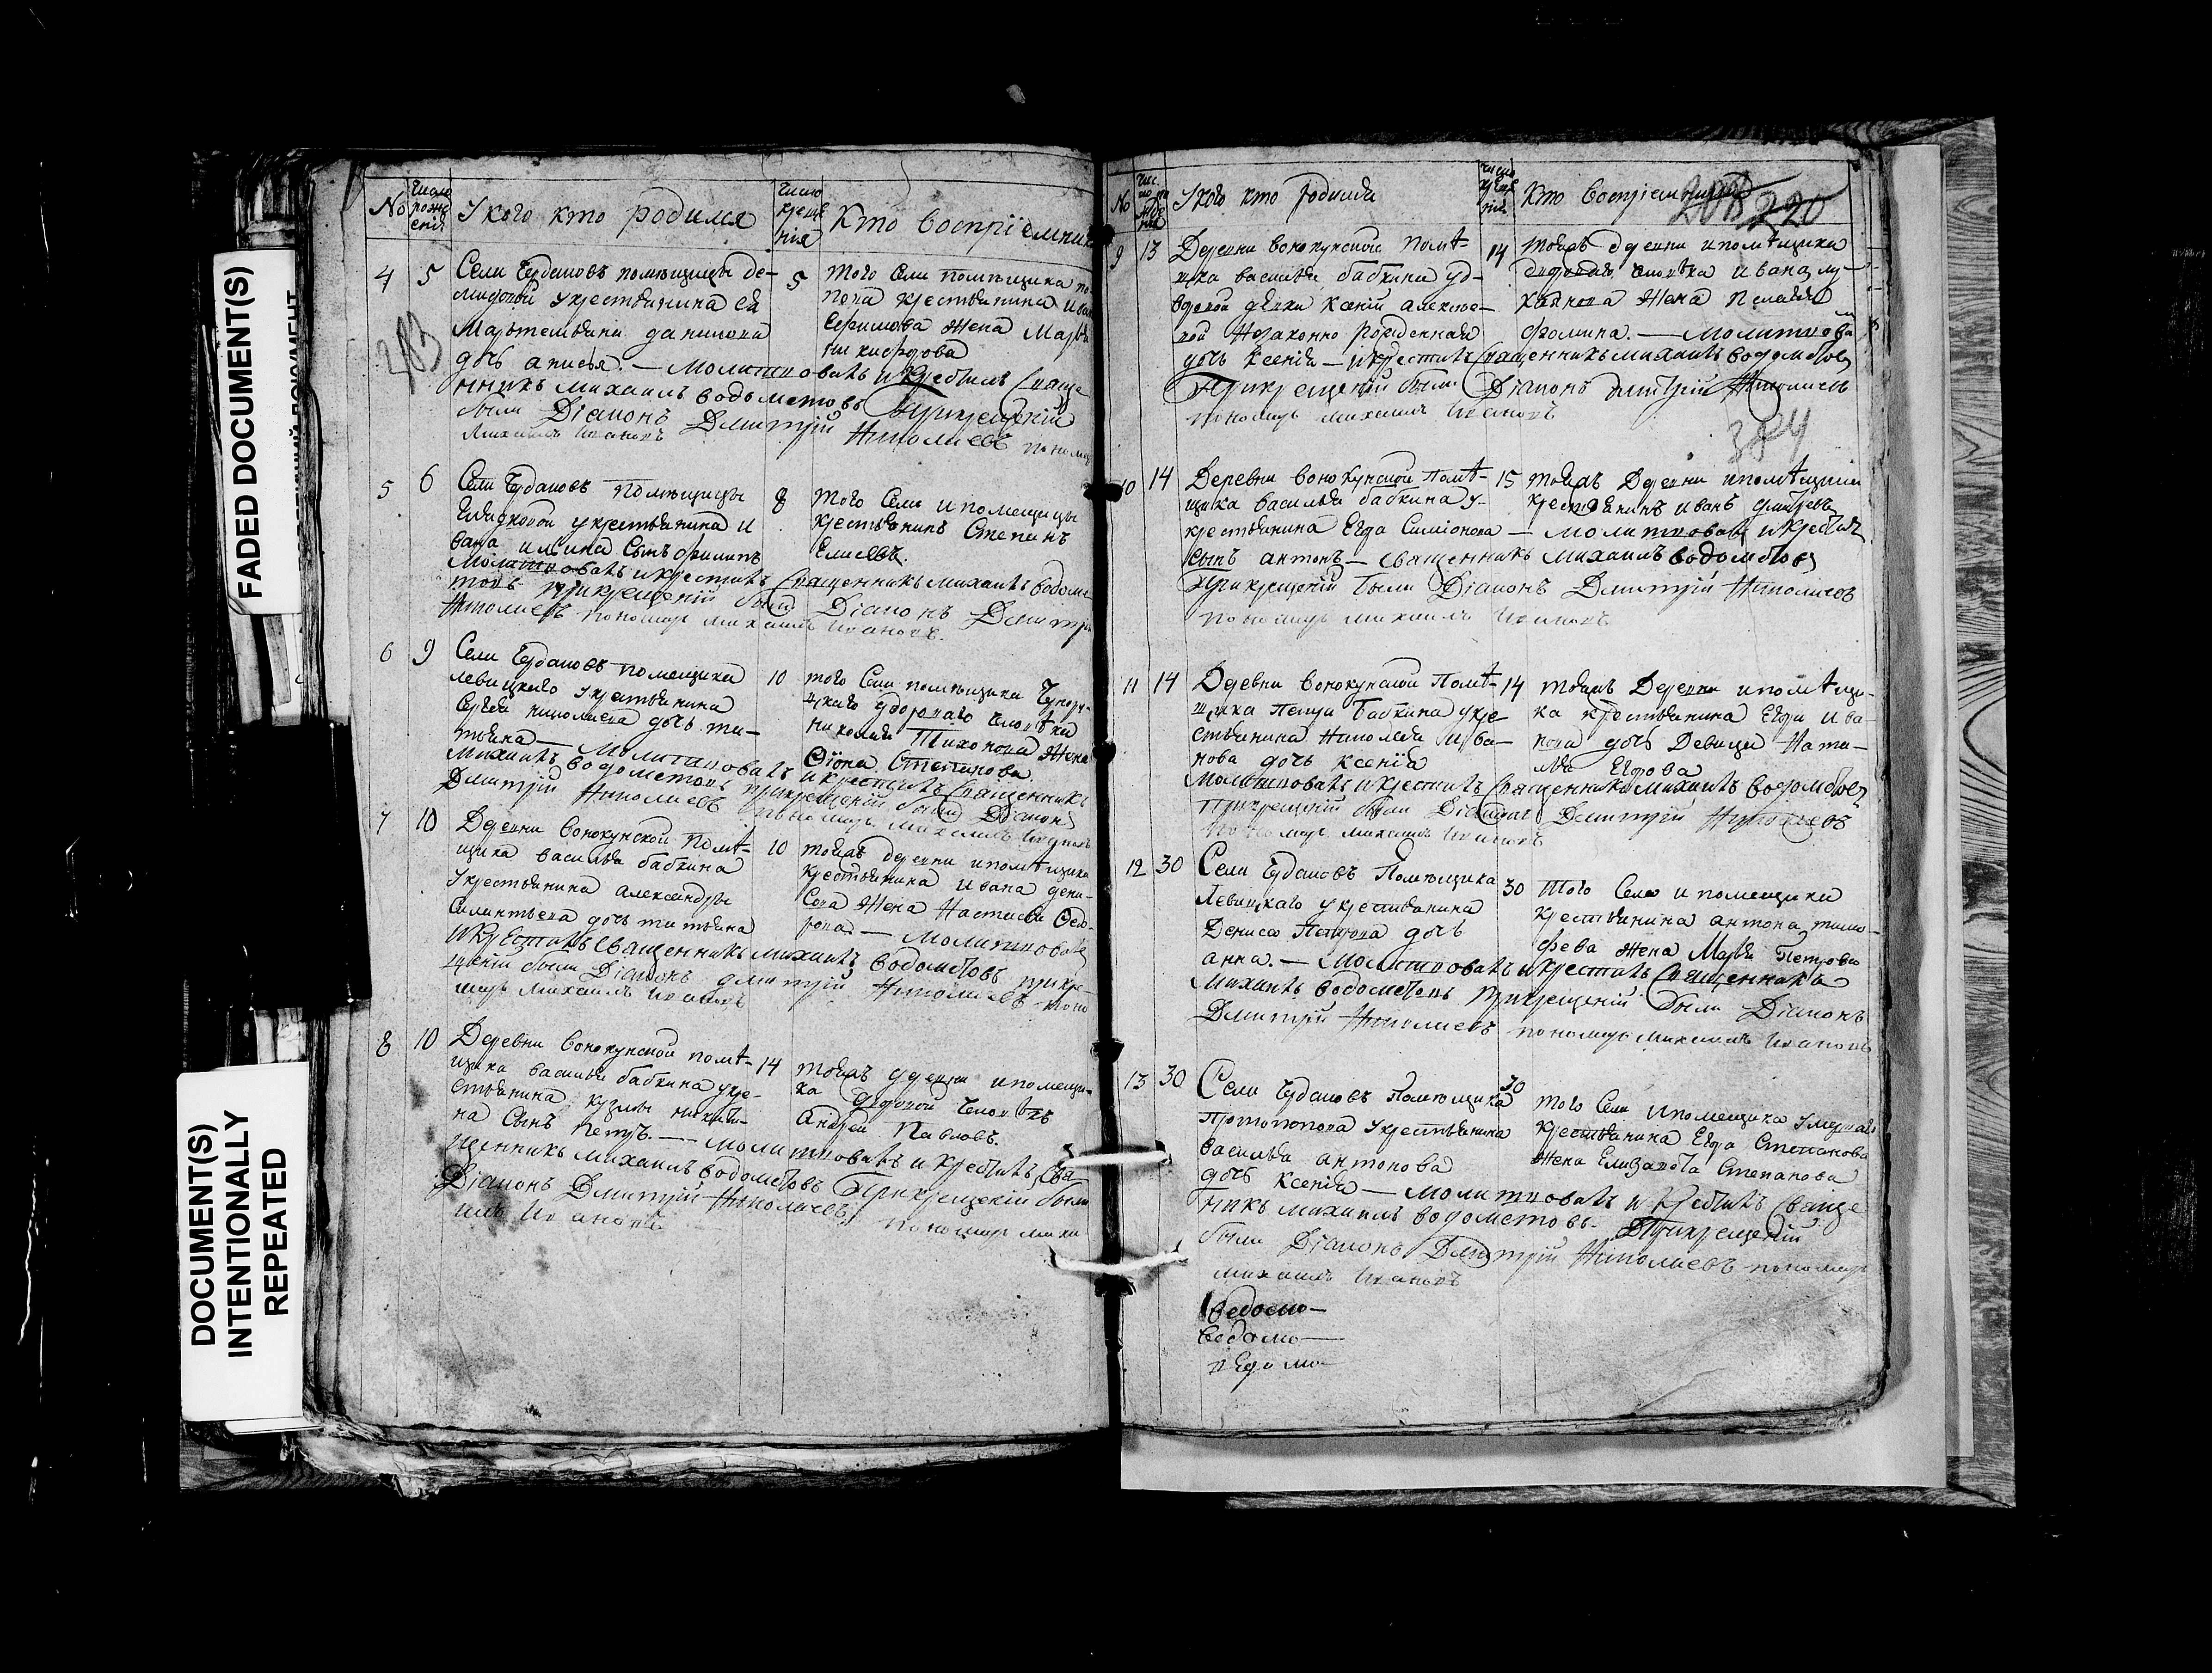 FADED DOCUMENT(S)
DOCUMENT(S)
INTENTIONALLY
REPEATED
No
Число
рожд
енiя
У кого кто родился
Число
креще
нiя
Кто воспрiемник
4 5 5
Села помѣщицы де-
мидовой у крестьянина
данилова
дочь анисья. — Молитвовалъ и крестилъ Свяще
нникъ Михаилъ водометовъ При крещенiи
были Дiаконъ Дмитрiй Николаевъ поном
Михаилъ Ивановъ
того Села помѣщика по
пова крестьянина Иван
Ефимова Жена Марья
никифорова
383
5 6 8
Села помѣщицы
у крестьянина и
вана Сынъ филипъ
Молитвовалъ и крестилъ Священникъ Михаилъ водоме
товъ при крещенiи были Дiаконъ Дмитрi
Николаевъ пономарь михаилъ Ивановъ.
того Села и помещицы
крестьянинъ Степанъ
Елисѣевъ.
6 9 10
Села помещика
левицкаго у крестьянина
Сергея николаева дочь та-
тьяна — Молитвовалъ и крестилъ Священникъ
Михаилъ водометовъ при крещенiи были Дiаконъ
Дмитрiй Николаевъ пономарь михаилъ Ивановъ
того Села помѣщика
двороваго человѣка
николая Тихонова Жена
Степанова.
7 10 10
Деревни Вонокунской помѣ-
щика василья бабкина
у крестьянина александры
дочь татьяна
и крестилъ Священникъ михаилъ водометовъ при кре-
щенiи были Дiаконъ дмитрiй Николаевъ поно
марь михаилъ Ивановъ
тойжъ деревни и помѣщика
крестьянина ивана дени-
сова Жена Настасья Ѳедо-
рова — Молитвовалъ
8 10 14
Деревни Вонокунской помѣ-
щика василья бабкина у кре-
стьянина кузмы никити-
на Сынъ Петръ. — молитвовалъ и крестилъ Свя
щенникъ михаилъ водометовъ При крещенiи были
Дiаконъ Дмитрiй Николаевъ пономарь миха
илъ Ивановъ
тойжъ деревни и помещи-
ка дворовой человѣкъ
Андрей Павловъ.
No
У кого кто родился
Кто воспрiемник
208 220
9 13 14
Деревни Вонокунской помѣ-
щика василья бабкина у д-
воровой девки Ксенiи алексѣе-
вой Незаконно рожденная
дочь Ксенiя — и крестилъ Священникъ михаилъ водометовъ
При крещенiи были Дiаконъ дмитрiй Николаевъ
пономарь михаилъ Ивановъ
тойжъ деревни и помѣщика
двороваго человѣка ивана лу-
каянова Жена Пелагея
фомина. — Молитвова
384
10 14 15
Деревни Вонокунской помѣ-
щика василья бабкина у-
крестьянина Егора Симiонова
сынъ антонъ — священникъ михаилъ водометовъ
При крещенiи были Дiаконъ Дмитрiй Николаевъ
пономарь михаилъ Ивановъ
тойжъ Деревни и помѣщика
крестьянинъ иванъ дмитревъ
— молитвовалъ и крестилъ
11 14 14
Деревни Вонокунской Помѣ-
щика Петра Бабкина у кре
стьянина Николая
нова дочь Ксенiя
Молитвовалъ и крестилъ Священникъ михаилъ водометовъ
При крещенiи были Дiаконъ Дмитрiй Николаевъ
пономарь михаилъ Ивановъ
тойжъ Деревни и помѣщи-
ка крестьянина Егора ива-
нова дочь Девица Ната-
лья Егорова
12 30 30
Села Помѣщика
Левицкаго у крестьянина
Дениса Петрова дочь
анна. — Молитвовалъ и крестилъ Священникъ
Михаилъ водометовъ При крещенiи были Дiаконъ
Дмитрiй Николаевъ пономарь михаилъ Ивановъ
того Села и помещика
крестьянина антона тимо-
фева жена Марья Петрова
13 30 30
Села Помѣщика
Протопопова у крестьянина
василья антонова
дочь Ксенiя — молитвовалъ и крестилъ Свяще
никъ михаилъ водометовъ. При крещенiи
были Дiаконъ Дмитрiй Николаевъ пономарь
михаилъ Ивановъ
того Села и помещика
крестьянина Егора Степанова
жена Елизавета Степанова
ведомо-
ведомо-
ведомо-